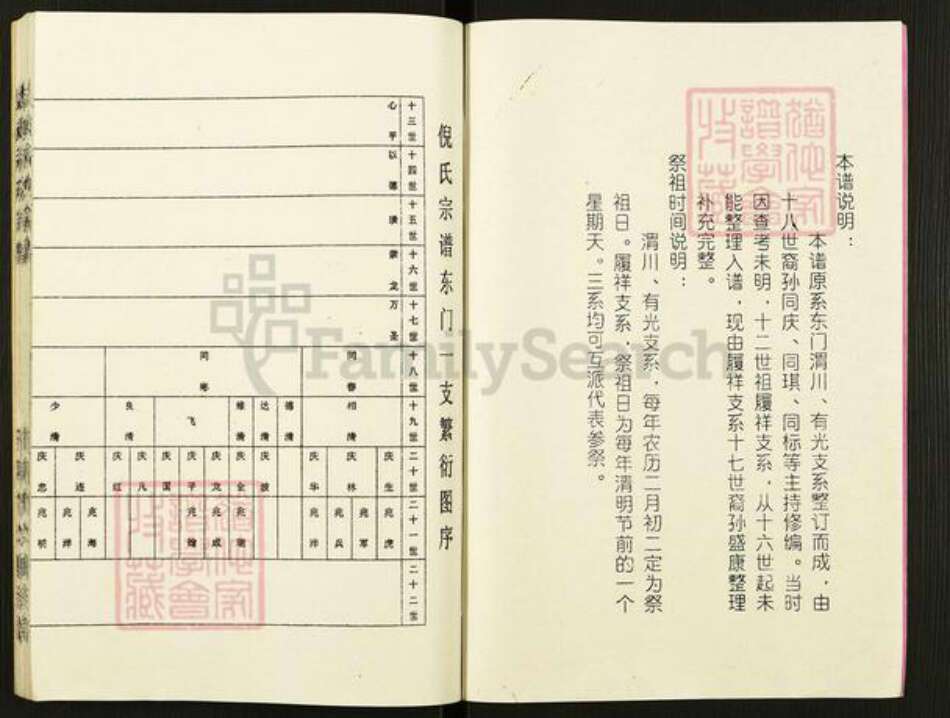 本谱说明：
本谱原系东门渭川、有光支系整订而成，由
十八世裔孙同庆、同琪、同标等主持修编。当时
因查考未明，十二世祖履祥支系，从十六世起未
能整理入谱，现由履祥支系十七世裔孙盛康整理
补充完整。
祭祖时间说明：
渭川、有光支系，每年农历二月初二定为祭
祖日。履祥支系，祭祖日为每年清明节前的一个
星期天。三系均可互派代表参祭。
倪氏宗谱东门一支繁衍图序
十三世
十四世
十五世
十六世
十七世
十八世
十九世
二十世
二十一世
二十二世
心平
以德
万圣
同春
相清
德清
达清
飞
良清
少清
庆生
庆林
庆华
庆波
庆金
庆龙
庆平
庆国
庆凡
庆红
庆连
庆忠
兆虎
兆军
兆兵
兆洋
兆成
兆海
兆洋
兆明
FamilySearch